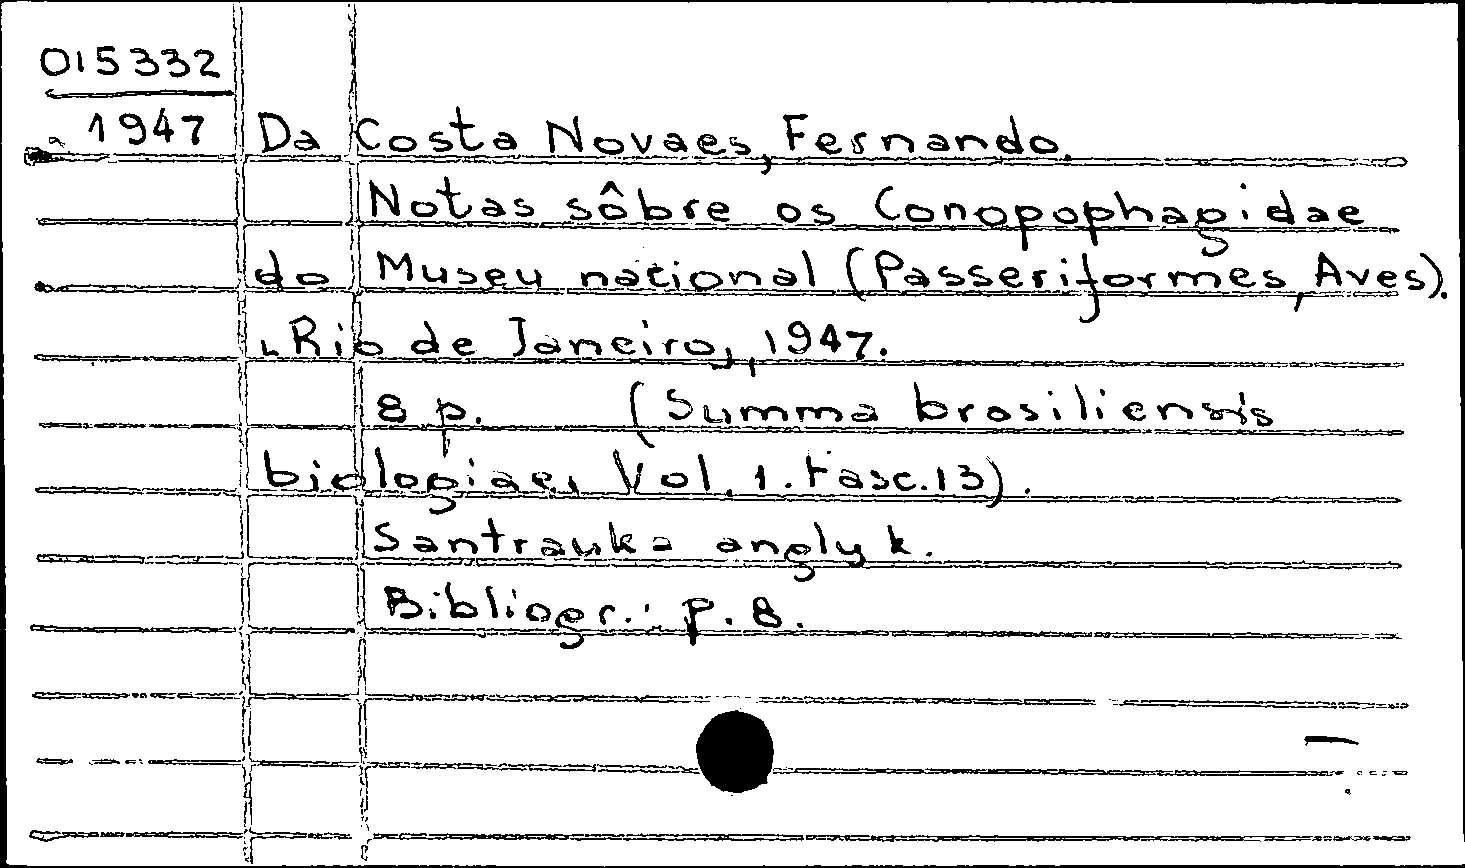 015332
1947 Da Costa Novaes, Fernando.
Notas sôbre os Conopophagidae
do Museu national (Passeriformes, Aves).
Rio de Janeiro, 1947.
8 p. (Summa brasiliensis
biologiae, Vol. 1. Fasc. 13).
Santrauka anglų k.
Bibliogr.: p. 8.